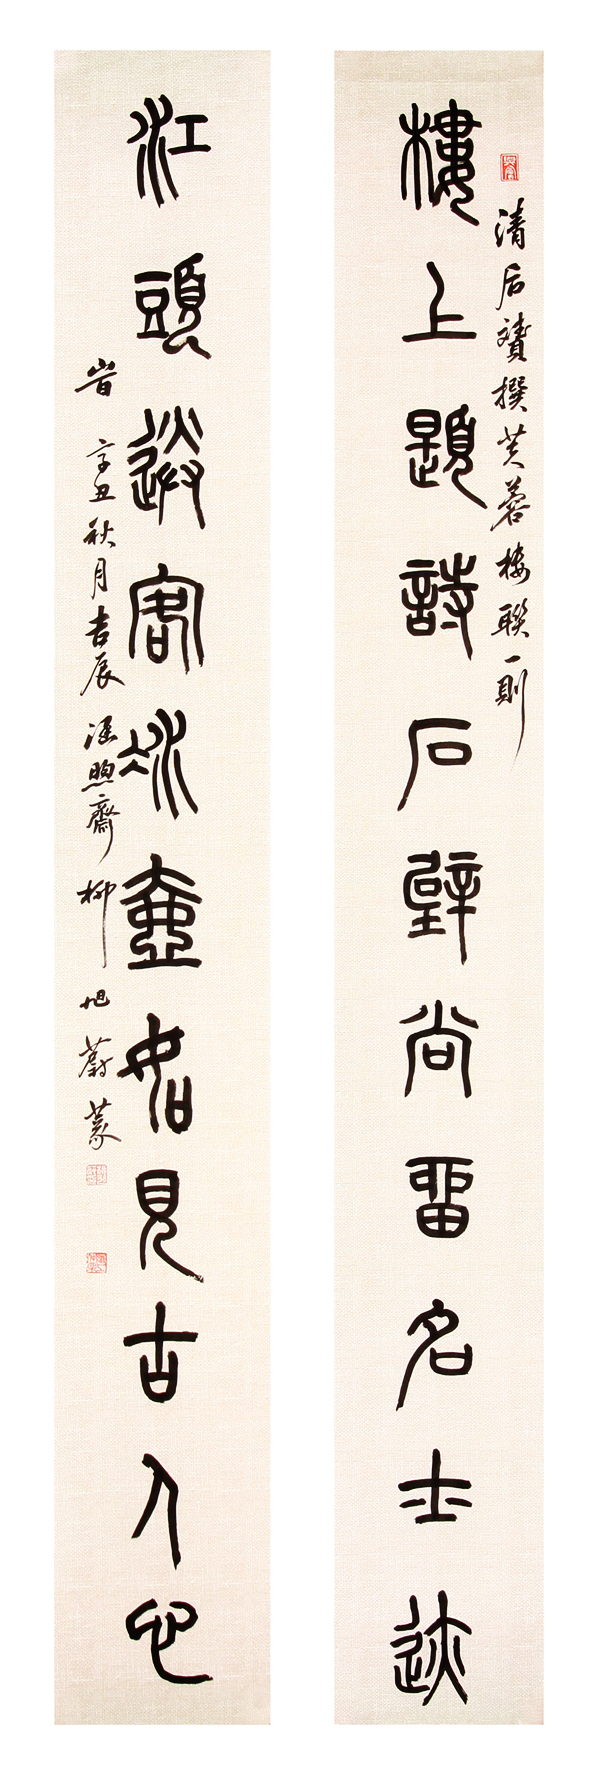 樓上題詩石壁尚留名士迹
清后贇撰芙蓉樓聯一則
江頭送客冰壺如見古人心
辛丑秋月吉辰涵煦齋柳旭蔚篆